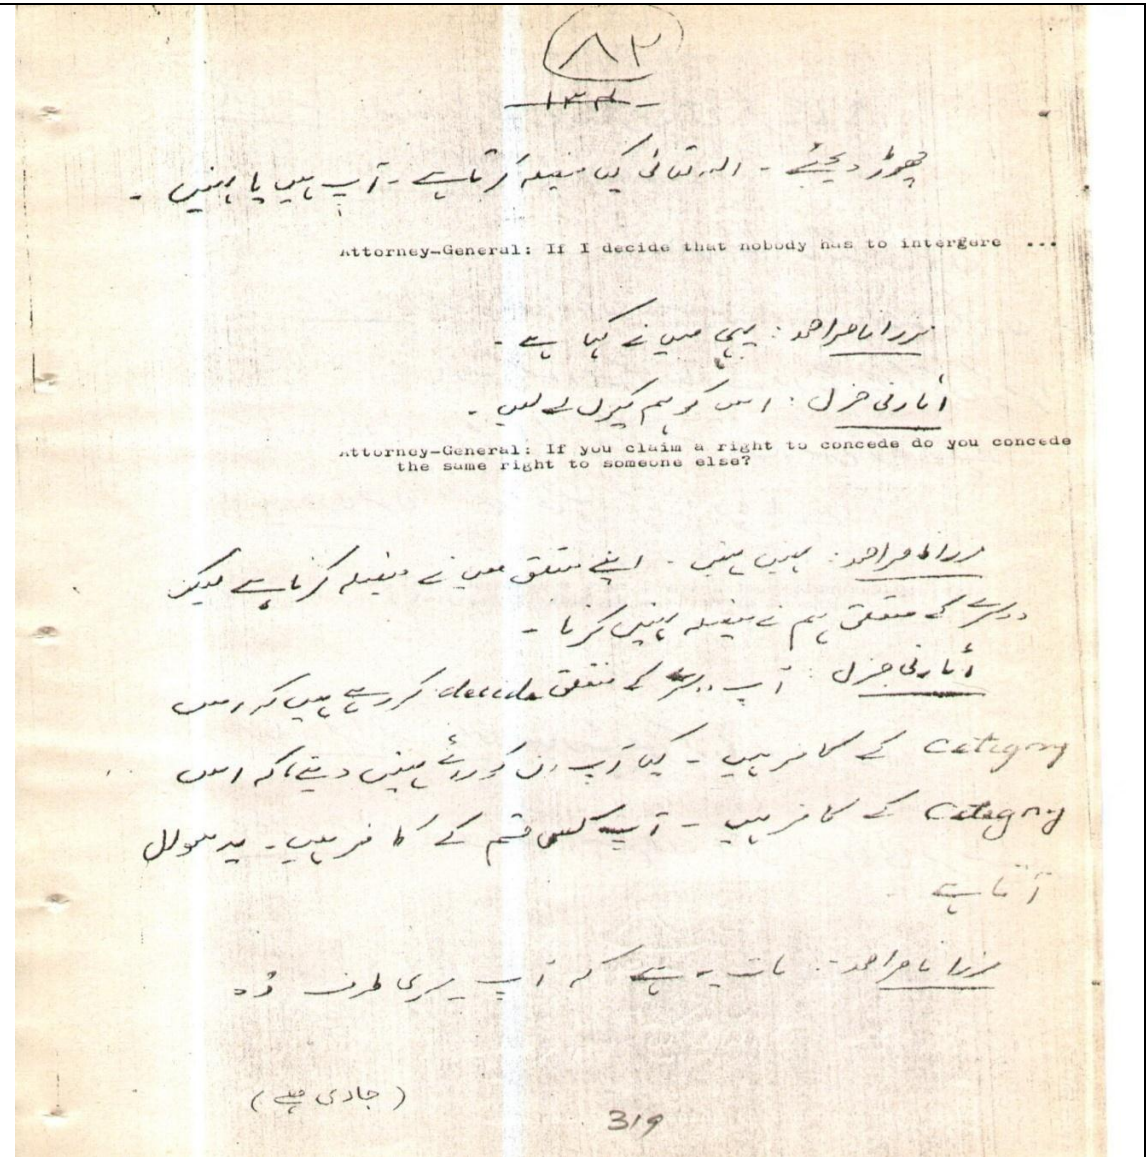 ۸۲
۱۳۴
چھوڑ دیجئے - اللہ تعالیٰ کیا فیصلہ کرتا ہے - آپ ہیں یا نہیں -
Attorney-General: If I decide that nobody has to intergere ...
مرزا ناصر احمد : یہی میں نے کہا ہے -
اٹارنی جنرل : اس کو ہم کیوں لے لیں -
Attorney-General: If you claim a right to concede do you concede
the same right to someone else?
مرزا ناصر احمد : نہیں نہیں - اپنے متعلق میں نے فیصلہ کرنا ہے لیکن
دوسرے کے متعلق ہم نے فیصلہ نہیں کرنا -
اٹارنی جنرل : آپ دوسرے کے متعلق decide کر رہے ہیں کہ اس
Category کے کافر ہیں - کیا آپ ان کو رائے نہیں دیتے کہ اس
Category کے کافر ہیں - آپ کس قسم کے کافر ہیں - یہ سوال
آتا ہے -
مرزا ناصر احمد : بات یہ ہے کہ آپ میری طرف وہ
(جاری ہے)
319